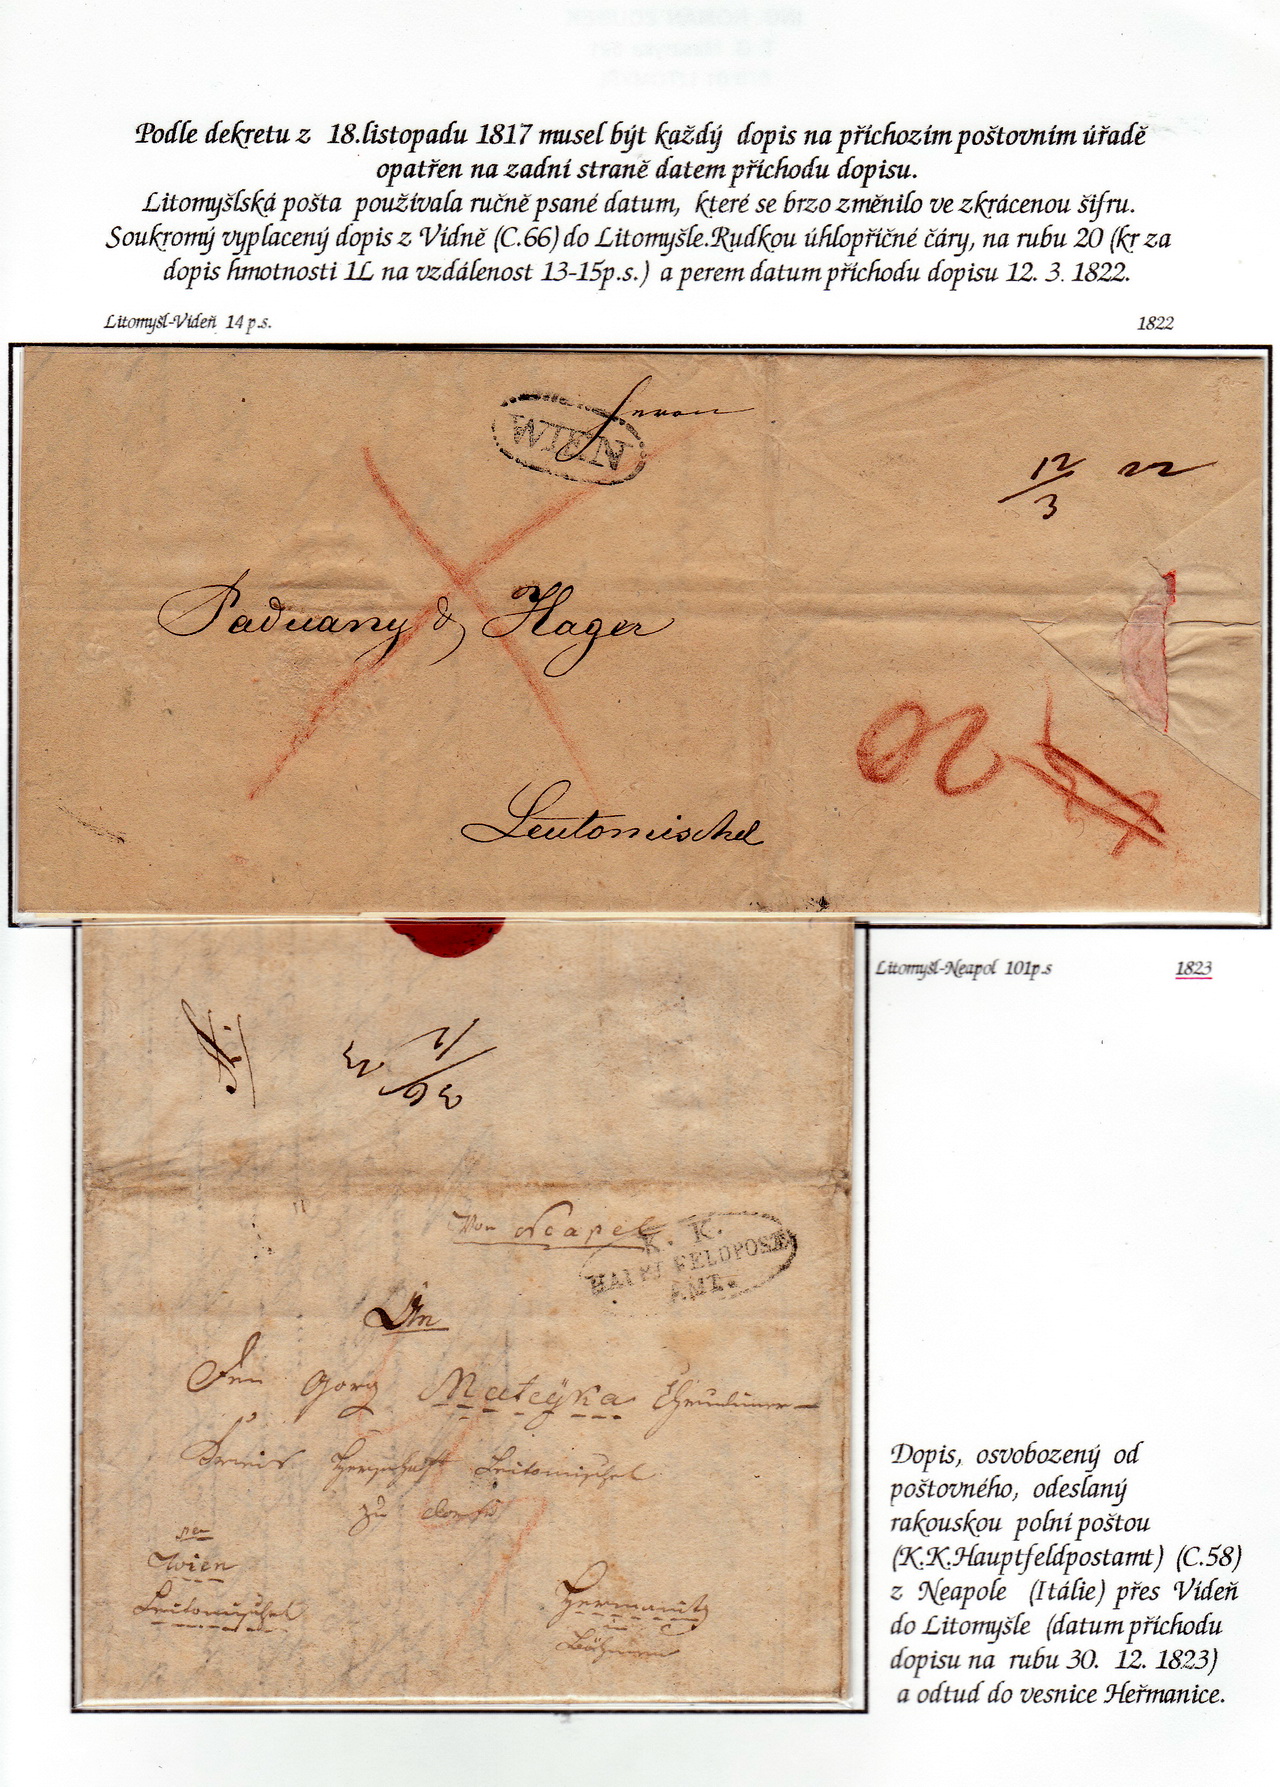 Podle dekretu z 18.listopadu 1817 musel být každý dopis na příchozím poštovním úřadě
opatřen na zadní straně datem příchodu dopisu.
Litomyšlská pošta používala ručně psané datum, které se brzo změnilo ve zkrácenou šifru.
Soukromý vyplacený dopis z Vídně (C.66) do Litomyšle.Rudkou úhlopříčné čáry, na rubu 20 (kr za
dopis hmotnosti 1L na vzdálenost 13-15p.s.) a perem datum příchodu dopisu 12. 3. 1822.
Litomyšl-Vídeň 14 p.s.
1822
Herrn
WIEN
12/3 22
Paduany & Hager
20
Leutomischel
Litomyšl-Neapol 101p.s
1823
30/12 23
Von Neapel
K. K.
HAUPT FELDPOST
AMT.
An
Den Georg Mateÿka Chrudimer
Kreis Herschaft Leitomischel
zu
per
Wien
Leitomischel
Hermanitz
in
Böhmen
Dopis, osvobozený od
poštovného, odeslaný
rakouskou polní poštou
(K.K.Hauptfeldpostamt) (C.58)
z Neapole (Itálie) přes Vídeň
do Litomyšle (datum příchodu
dopisu na rubu 30. 12. 1823)
a odtud do vesnice Heřmanice.